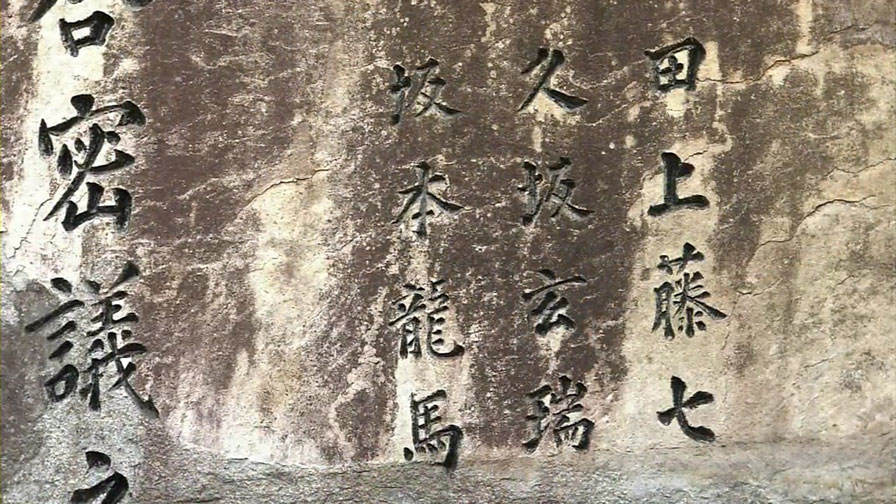 田上藤七
久坂玄瑞
坂本龍馬
密議之